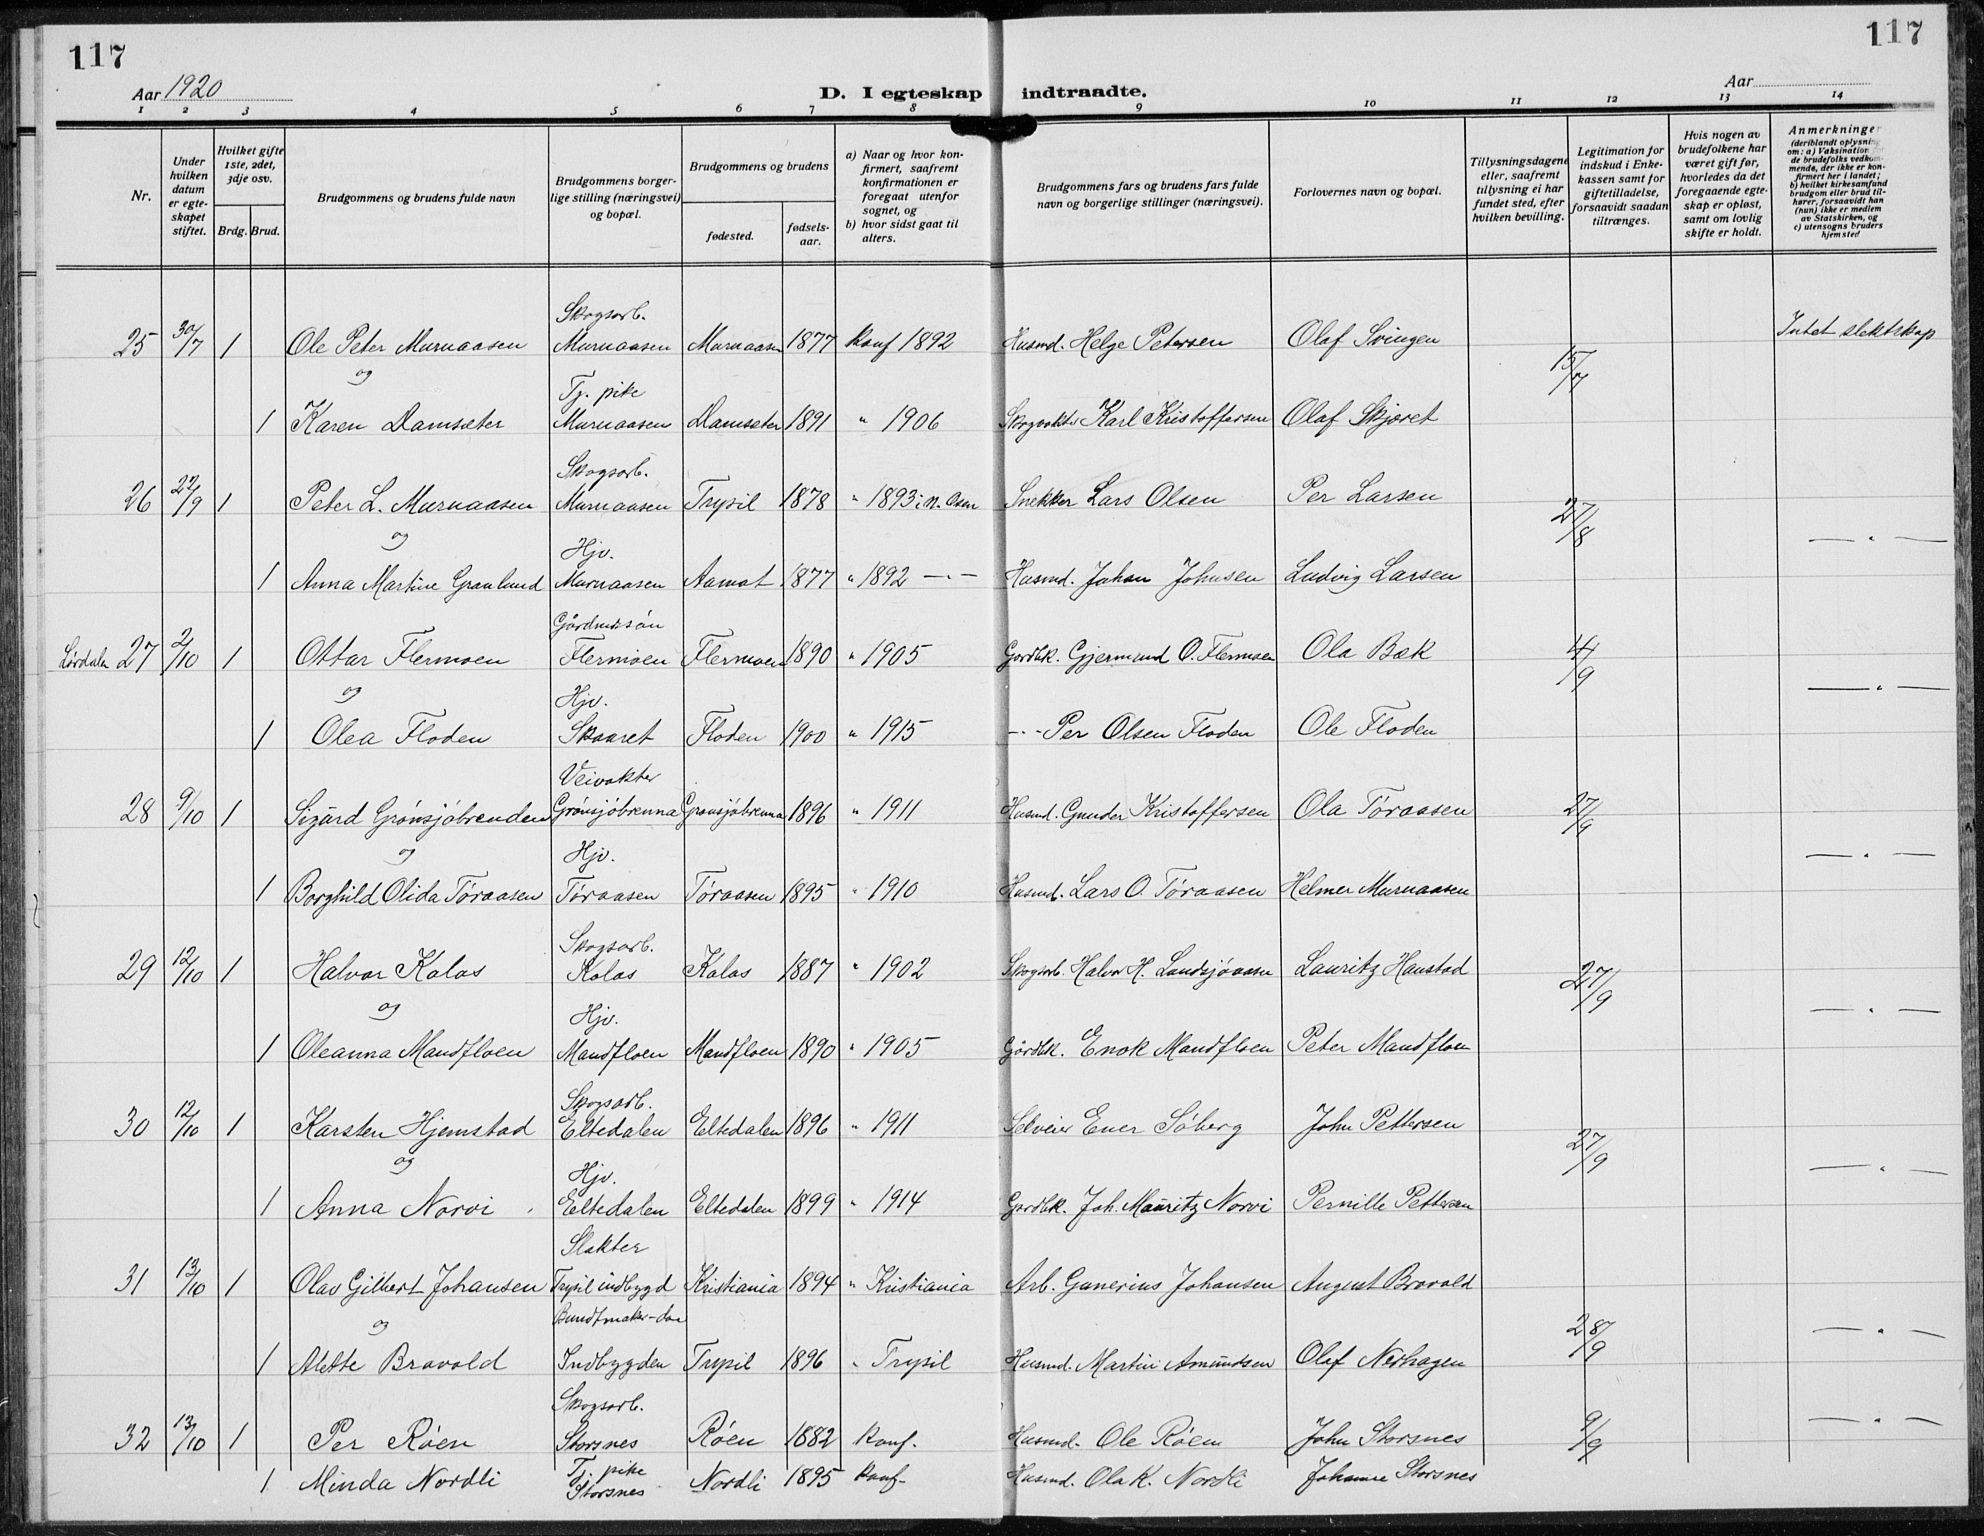 117
117
Aar 1920
D. I egteskap indtraadte.
Aar
1 2 3 4 5 6 7 8 9 10 11 12 13 14
Nr.
Under hvilken datum er egteskapet stiftet.
Hvilket gifte 1ste, 2det, 3dje osv.
Brdg. Brud.
Brudgommens og brudens fulde navn
Brudgommens borgerlige stilling (næringsvei) og bopæl.
Brudgommens og brudens
fødested.
fødselsaar.
a) Naar og hvor konfirmert, saafremt konfirmationen er foregaat utenfor sognet, og
b) hvor sidst gaat til alters.
Brudgommens fars og brudens fars fulde navn og borgerlige stillinger (næringsvei).
Forlovernes navn og bopæl.
Tillysningsdagene eller, saafremt tillysning ei har fundet sted, efter hvilken bevilling.
Legitimation for indskud i Enkekassen samt for giftetilladelse, forsaavidt saadan tiltrænges.
Hvis nogen av brudefolkene har været gift før, hvorledes da det foregaaende egteskap er opløst, samt om lovlig skifte er holdt.
Anmerkninger (deriblandt oplysning om: a) Vaksination for de brudefolks vedkommende, der ikke er konfirmert her i landet; b) hvilket kirkesamfund brudgom eller brud tilhører, forsaavidt han (hun) ikke er medlem av Statskirken, og c) utensogns bruders hjemsted
Skogsarb.
25 30/7 1 Ole Peter Murnaasen Murnaasen Murnaasen 1877 konf 1892 Husmd. Helge Petersen Olaf Svingen 15/7 Intet slektskap
og Tj. pike
1 Karen Damsæter Murnaasen Damsæter 1891 " 1906 Skogvokter Karl Kristoffersen Olaf Skjæret
Skogsarb.
26 27/9 1 Peter L. Murnaasen Murnaasen Trysil 1878 " 1893 i N. Osen Snekker Lars Olsen Per Larsen 27/8 — " —
og Hjv.
1 Anna Martine Granlund Murnaasen Aamot 1877 " 1892 — " — Husmd. Johan Johnsen Ludvig Larsen
Gårdmssøn
Lørdalen 27 2/10 1 Ottar Flermoen Flermoen Flermoen 1890 " 1905 Gardbk. Gjermund O. Flermoen Ola Bæk 4/9 — " —
og Hjv.
1 Olea Floden Skaaret Floden 1900 " 1915 - " - Per Olsen Floden Ole Floden
Veivokter
28 9/10 1 Sigurd Grønsjøbrenden Grønsjøbrenna Grønsjøbrenna 1896 " 1911 Husmd. Gunder Kristoffersen Ola Tøraasen 27/9 — " —
og Hjv.
1 Borghild Olida Tøraasen Tøraasen Tøraasen 1895 " 1910 Husmd. Lars O. Tøraasen Helmer Murnaasen
Skogsarb.
29 12/10 1 Halvar Kolos Kolos Kolos 1887 " 1902 Skogsarb. Halvor H. Landsjøaasen Lauritz Haustad 27/9 — " —
og Hjv.
1 Oleanna Mandfloen Mandfloen Mandfloen 1890 " 1905 Gårdbk. Enok Mandfloen Peter Mandfloen
Skogsarb.
30 12/10 1 Karsten Hjemstad Eltedalen Eltedalen 1896 " 1911 Selveier Ener Søberg John Pettersen 27/9 — " —
og Hjv.
1 Anna Norvi Eltedalen Eltedalen 1899 " 1914 Gardbk. Joh. Mauritz Norvi Pernille Pettersen
Slakter
31 13/10 1 Olav Gilbert Johansen Trysil indbygd Kristiania 1894 " Kristiania Arb. Gunerius Johansen August Bravold 28/9 — " —
og Bundtmaker-
1 Alette Bravold Indbygden Trysil 1896 " Trysil Husmd. Martin Amundsen Olaf Nerhagen
Skogsarb.
32 13/10 1 Per Røen Storsnes Røen 1882 konf. Husmd. Ole Røen John Storsnes 9/9 — " —
Tj. pike
1 Minda Nordli Storsnes Nordli 1895 konf- Husmd. Ola K. Nordli Johanne Storsnes